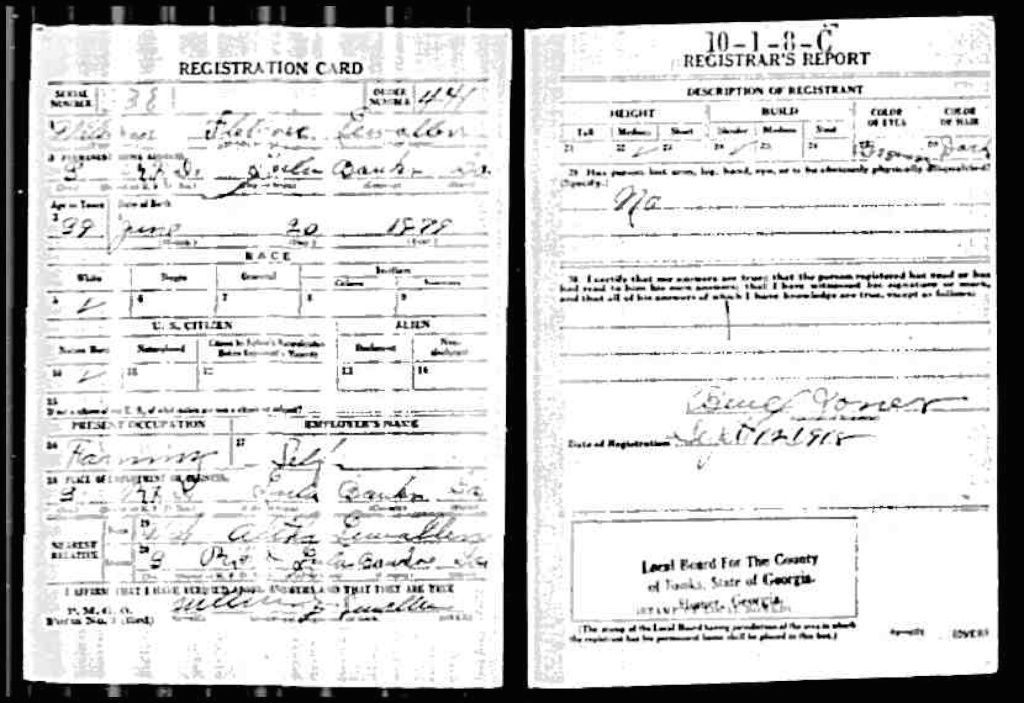 REGISTRATION CARD
SERIAL NUMBER 38 ORDER NUMBER 441
1 Lewallen
2 PERMANENT HOME ADDRESS
3 R.F.D. Lula Banks Ga.
Age in Years Date of Birth
3 39 June 20 1879
(Month.) (Day.) (Year.)
RACE
White Negro Oriental Indian
Citizen Noncitizen
5 ✓ 6 7 8 9
U. S. CITIZEN ALIEN
Native Born Naturalized Citizen by Father's Naturalization Before Registrant's Majority Declarant Non-declarant
10 ✓ 11 12 13 14
15
If not a citizen of the U. S., of what nation are you a citizen or subject?
PRESENT OCCUPATION EMPLOYER'S NAME
16 Farming 17 Self
18 PLACE OF EMPLOYMENT OR BUSINESS
3 R.F.D. Lula Banks Ga
NEAREST RELATIVE Name 19 Lewallen
Address 20 3 R.F.D. Lula Banks Ga
I AFFIRM THAT I HAVE VERIFIED ABOVE ANSWERS AND THAT THEY ARE TRUE
P. M. G. O.
Form No. 1 (Red) Lewallen (OVER)
10-1-8-C
REGISTRAR'S REPORT
DESCRIPTION OF REGISTRANT
HEIGHT BUILD COLOR OF EYES COLOR OF HAIR
Tall Medium Short Slender Medium Stout
21 22 ✓ 23 24 ✓ 25 26 27 Brown 28 Dark
29 Has person lost arm, leg, hand, eye, or is he obviously physically disqualified?
(Specify.)
No
30 I certify that my answers are true; that the person registered has read or has
had read to him his own answers; that I have witnessed his signature or mark,
and that all of his answers of which I have knowledge are true, except as follows:
Jones
Date of Registration Sept 12 1918
Local Board For The County
of Banks, State of Georgia.
Homer, Georgia.
(STAMP OF LOCAL BOARD)
(The stamp of the Local Board having jurisdiction of the area in which
the registrant has his permanent home shall be placed in this box.)
(OVER)